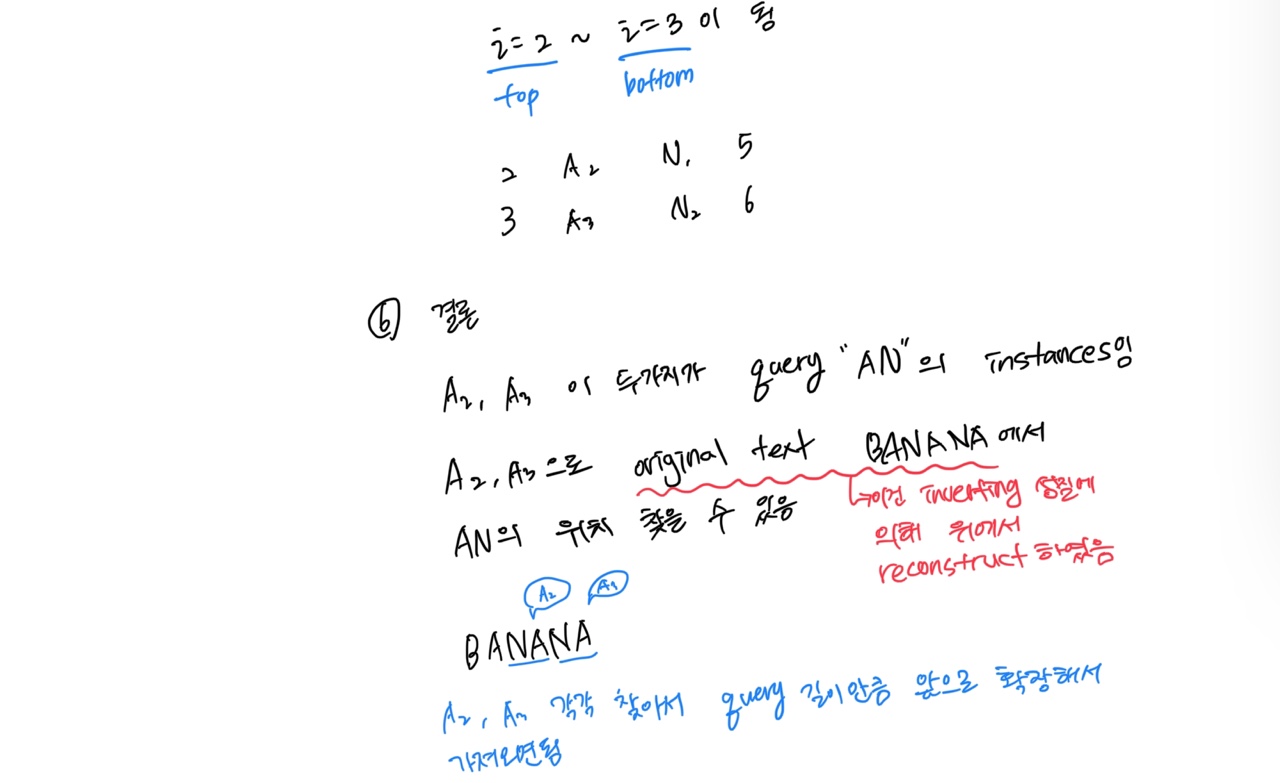 i=2 ~ i=3 이 됨
top bottom
2 A₂ N₁ 5
3 A₃ N₂ 6
⑥ 결론
A₂, A₃ 이 두가지가 query "AN"의 instances임
A₂, A₃으로 original text BANANA에서
↳이건 inverting 성질에
AN의 위치 찾을 수 있음
의해 위에서
reconstruct 하였음
A₂
BANANA
A₂, A₃ 각각 찾아서 query 길이만큼 앞으로 확장해서
가져오면됨